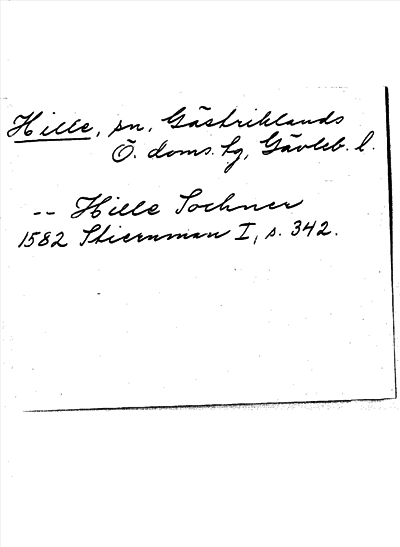 Hille, sn, Gästriklands
Ö. doms. tg, Gävleb. l.
-- Hille Sochner
1582 Stiernman I, s. 342.